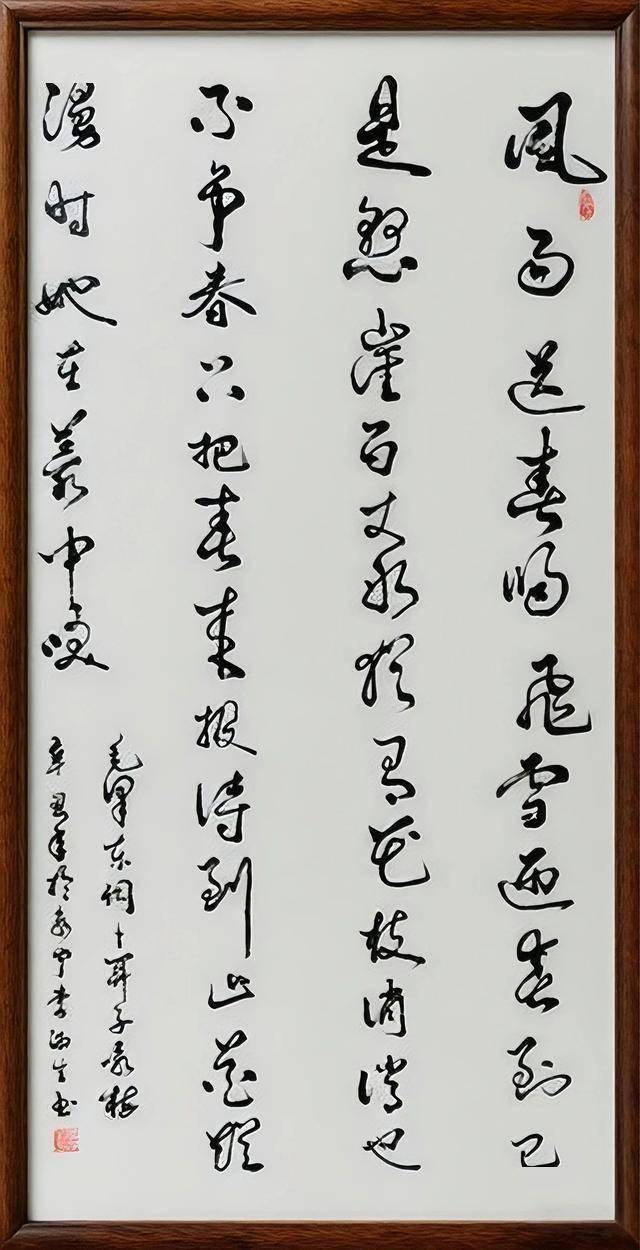 风雨送春归飞雪迎春到已
是悬崖百丈冰犹有花枝俏俏也
不争春只把春来报待到山花烂
漫时她在丛中咲
毛泽东词卜算子咏梅
辛丑年于李生书